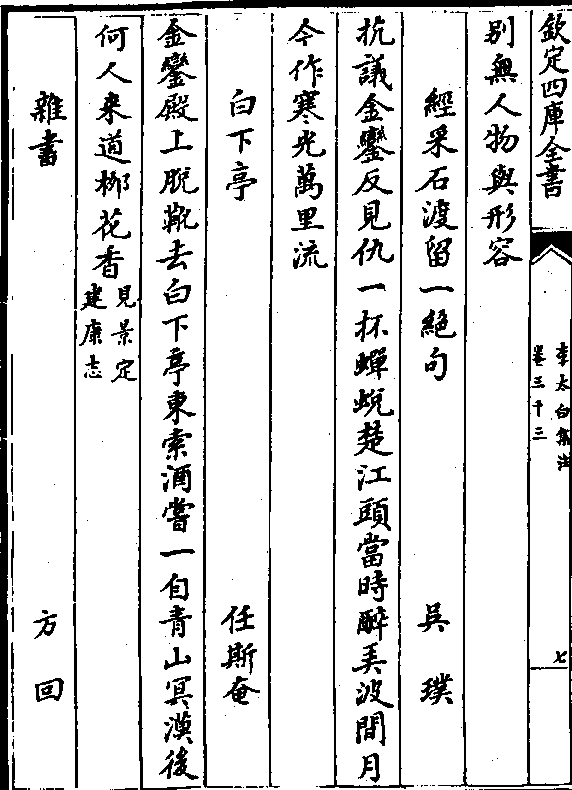 欽定四庫全書
李太白集注
卷三十三
七
別無人物與形容
經采石渡留一絶句 吳璞
抗議金鑾反見仇一杯蟬蛻楚江頭當時醉弄波間月
今作寒光萬里流
白下亭 任斯奄
金鑾殿上脫靴去白下亭東索酒嘗一自青山冥漠後
何人來道栁花香見景定
建康志
雜書 方回